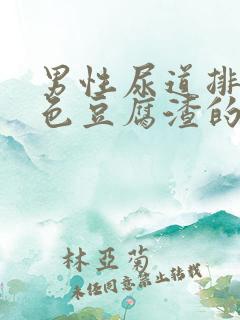 男性尿道排
色豆腐渣的
林亞菊
未经同意禁止转载